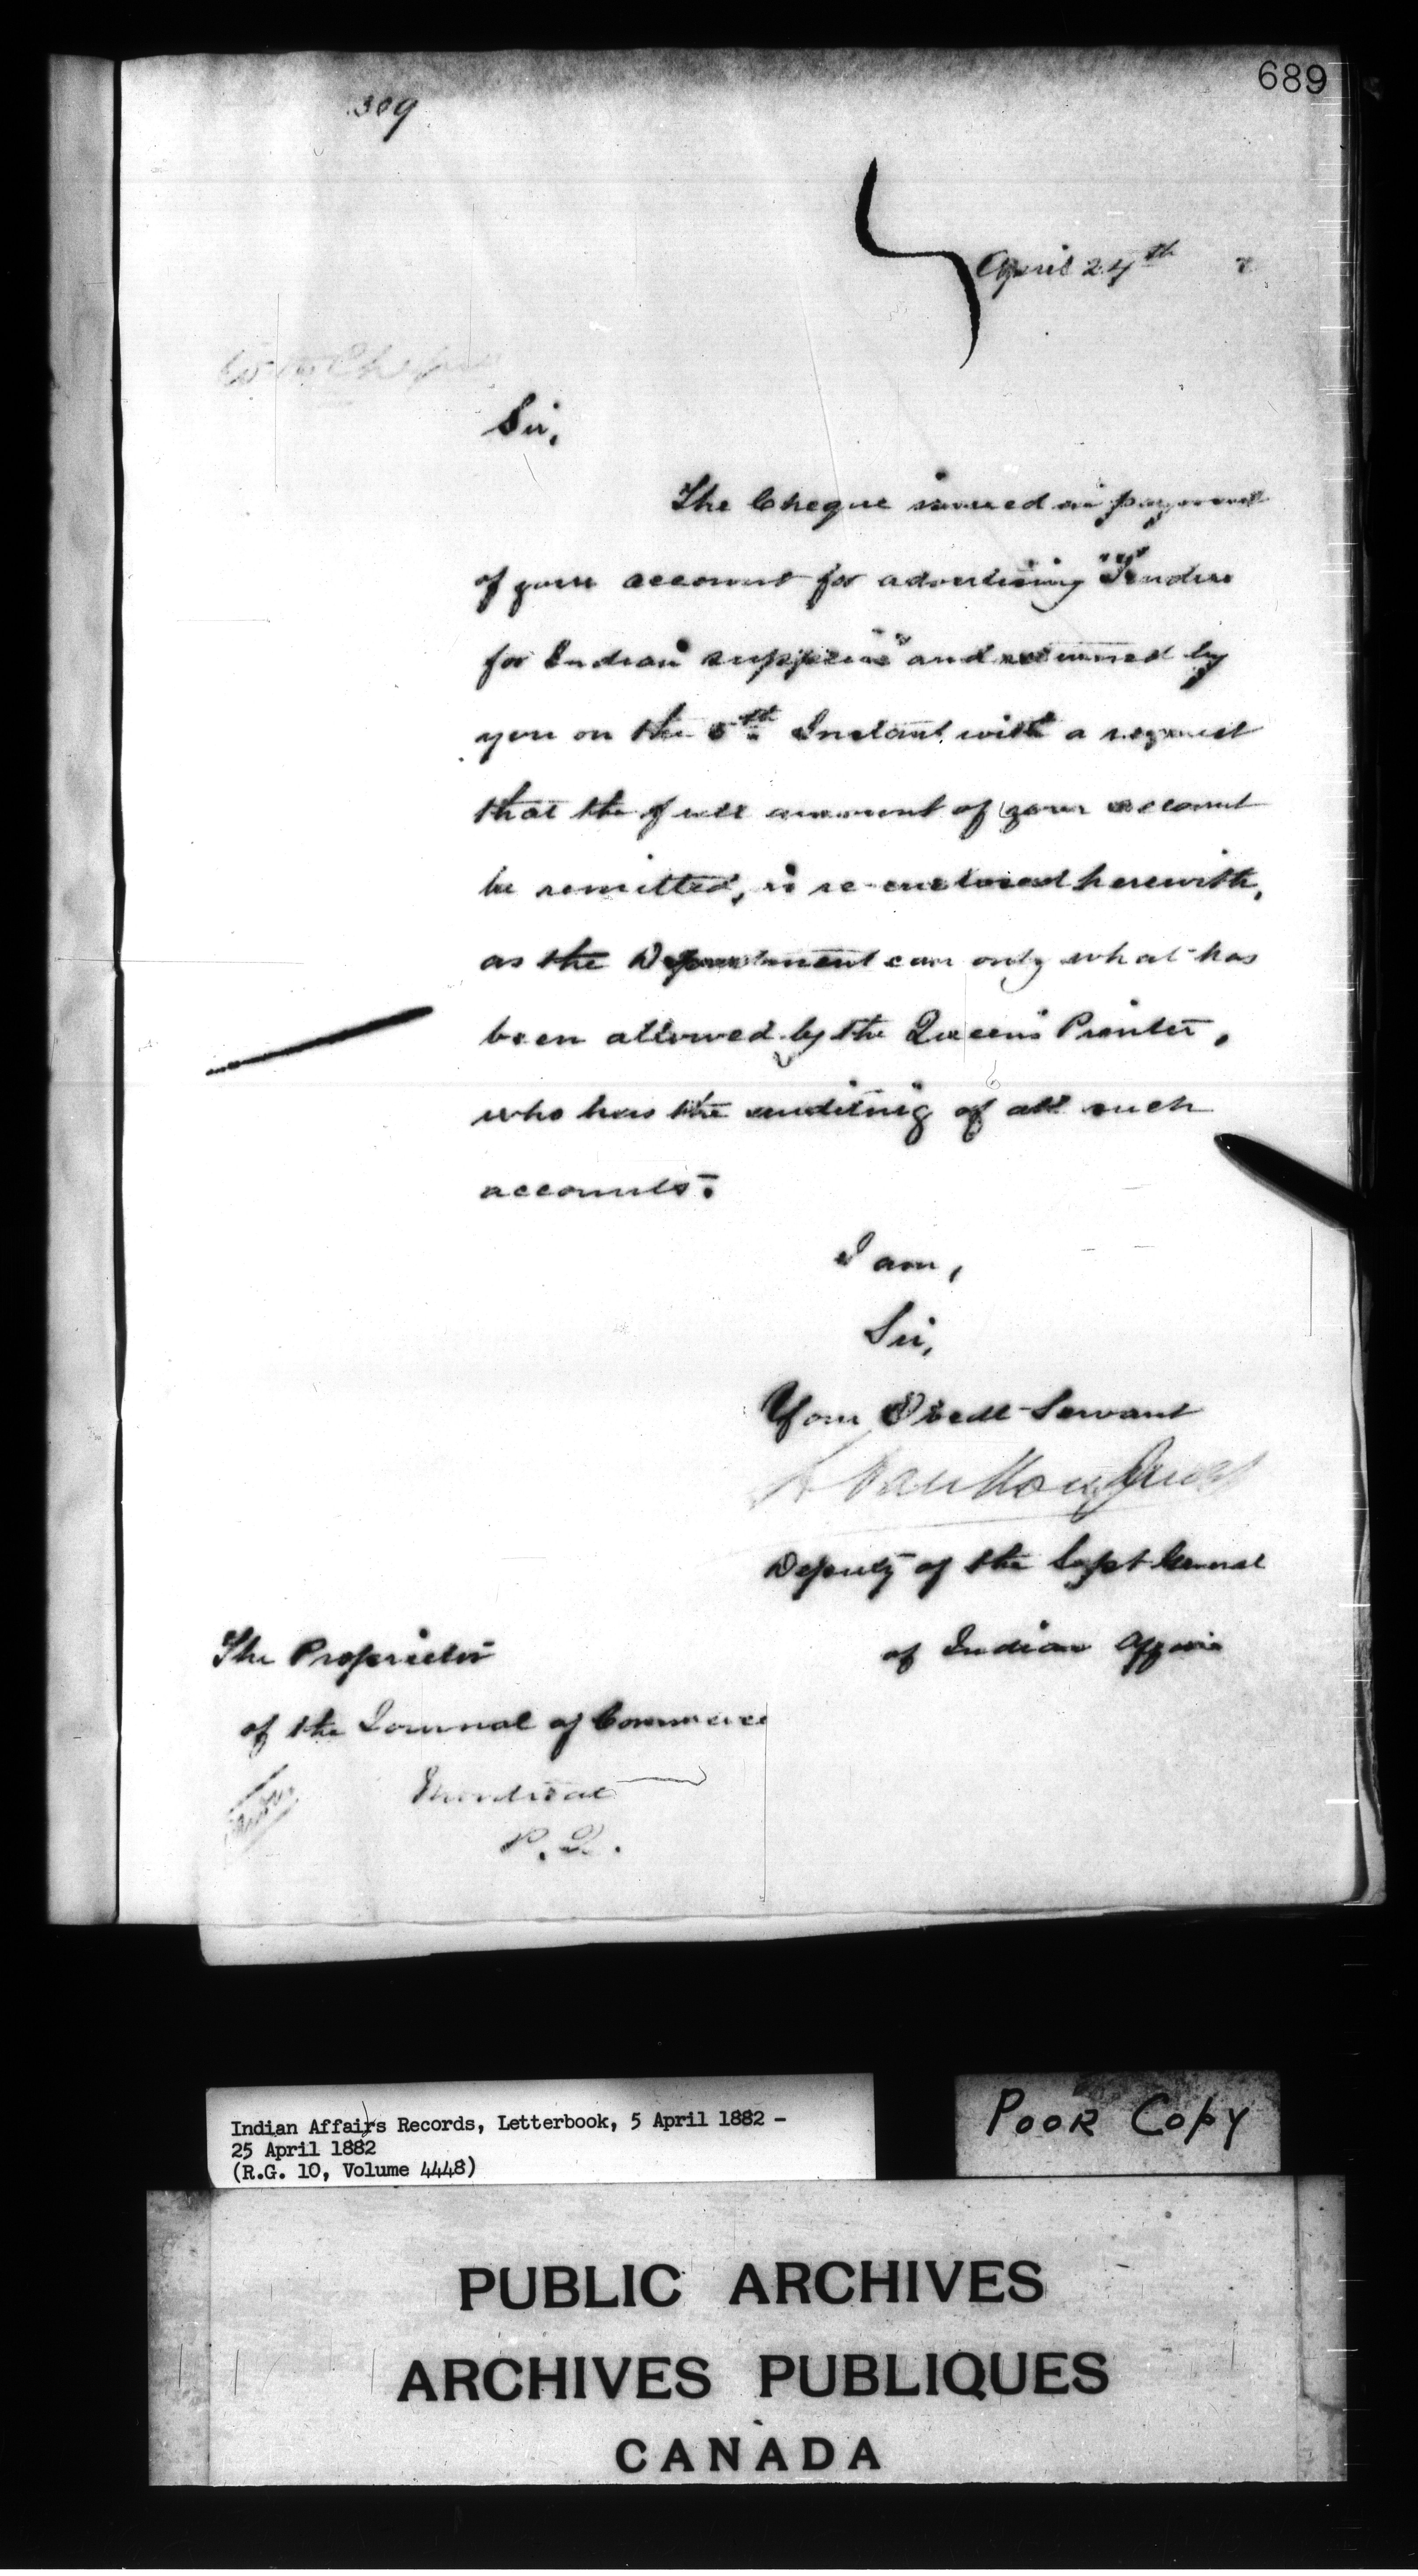 689
309
April 24th 2
With Cheque
Sir,
The Cheque issued in payment
of your account for advertising "Tenders
for Indian supplies" and returned by
you on the 5th Instant with a request
that the full amount of your account
be remitted, is re-enclosed herewith,
as the Department can only what has
been allowed by the Queen's Printer,
who has the auditing of all such
accounts.
I am,
Sir,
Your Obedt Servant
L Vankoughnet
Deputy of the Supt General
of Indian Affairs
The Proprietor
of the Journal of Commerce
Montreal
P.Q.
Indian Affairs Records, Letterbook, 5 April 1882 -
25 April 1882
(R.G. 10, Volume 4448)
POOR COPY
PUBLIC ARCHIVES
ARCHIVES PUBLIQUES
CANADA